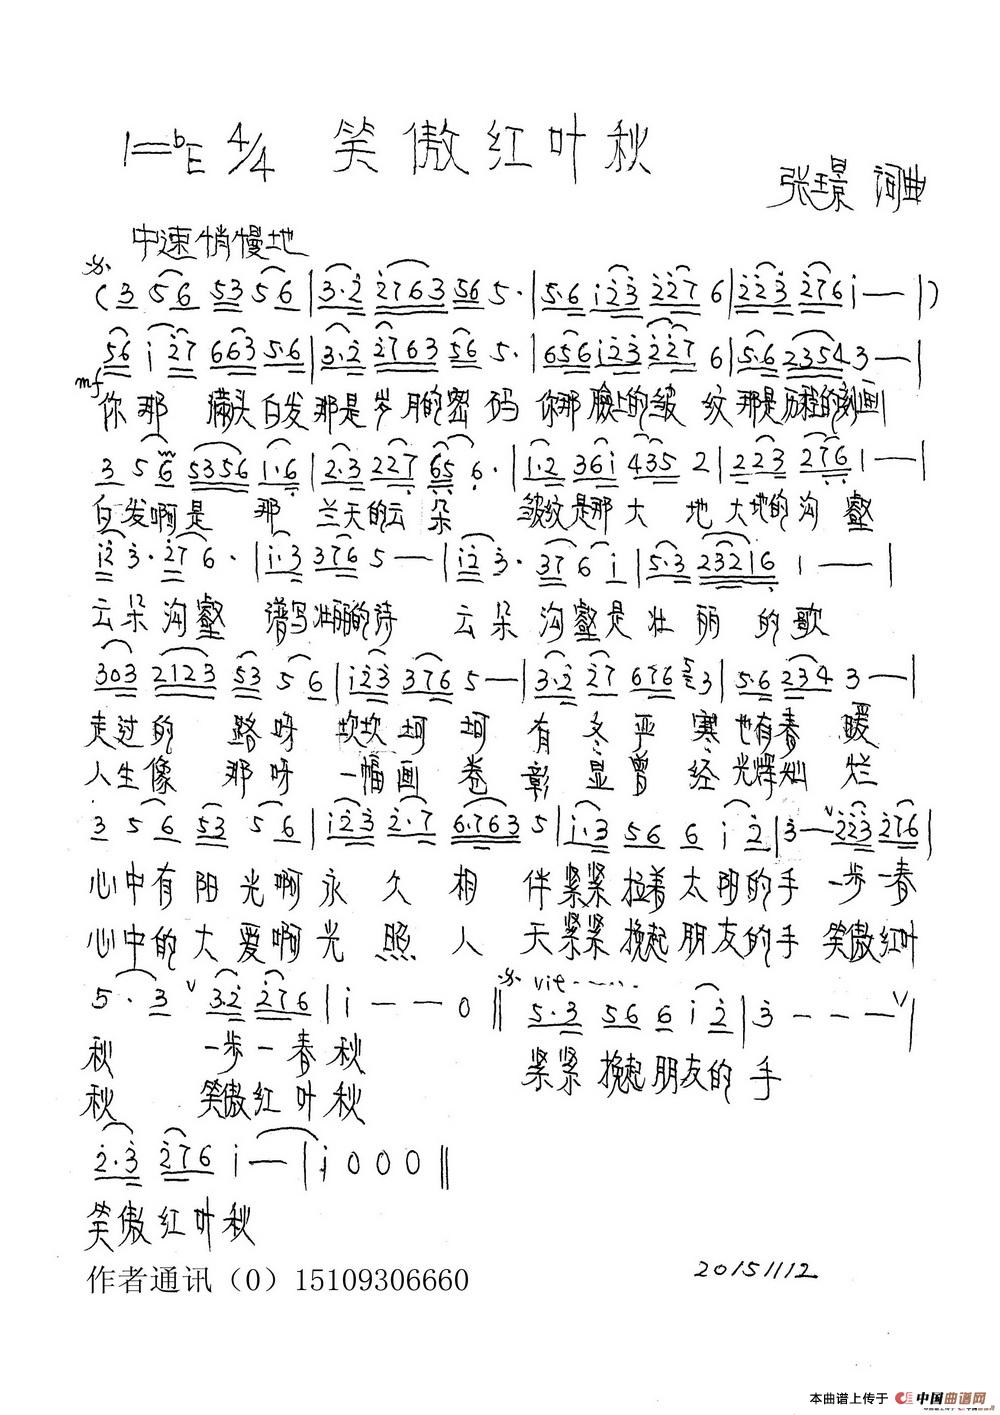 1=♭E 4/4 笑傲红叶秋
张璟 词曲
中速悄慢地
(3 56 53 56 | 3·2 2763 56 5· | 5·6 i23 227 6 | 223 276 i — | )
56 i 27 663 5·6 | 3·2 2763 56 5· | 656 i23 227 6 | 5·6 2354 3 — |
mf
你那 满头白发那是岁月的密码 你那脸上的皱纹那是历程的刻画
3 56 5356 1·6 | 2·3 227 65 6· | 1·2 36i 435 2 | 223 276 1 — |
白发啊是 那 兰天的云朵 皱纹是那大地大地的沟壑
i2 3· 27 6· | i·3 376 5 — | i2 3· 37 6 i | 5·3 23216 1 — |
云朵沟壑 谱写壮丽的诗 云朵沟壑是壮丽的歌
303 2123 53 5 6 | i23 376 5 — | 3·2 27 676 3 | 5·6 234 3 — |
走过的 路呀 坎坎坷坷 有冬严寒也有春暖
人生像 那呀 一幅画卷 彰显曾经光辉灿烂
3 5 6 53 5 6 | i23 2·7 6·763 5 | i·3 56 6 i 2 | 3 — ∨223 276 |
心中有阳光啊永久相伴紧紧拉着太阳的手 一步一春
心中的大爱啊光照人天紧紧挽起朋友的手 笑傲红叶
5· 3 ∨ 3·2 276 | i — — 0 ‖ 5·3 56 6 i 2 | 3 — — — ∨ |
vit······
秋 一步一春秋
紧紧挽起朋友的手
秋 笑傲红叶秋
2·3 276 i — | i 0 0 0 ‖
笑傲红叶秋
作者通讯（0）15109306660
20151112
本曲谱上传于 中国曲谱网